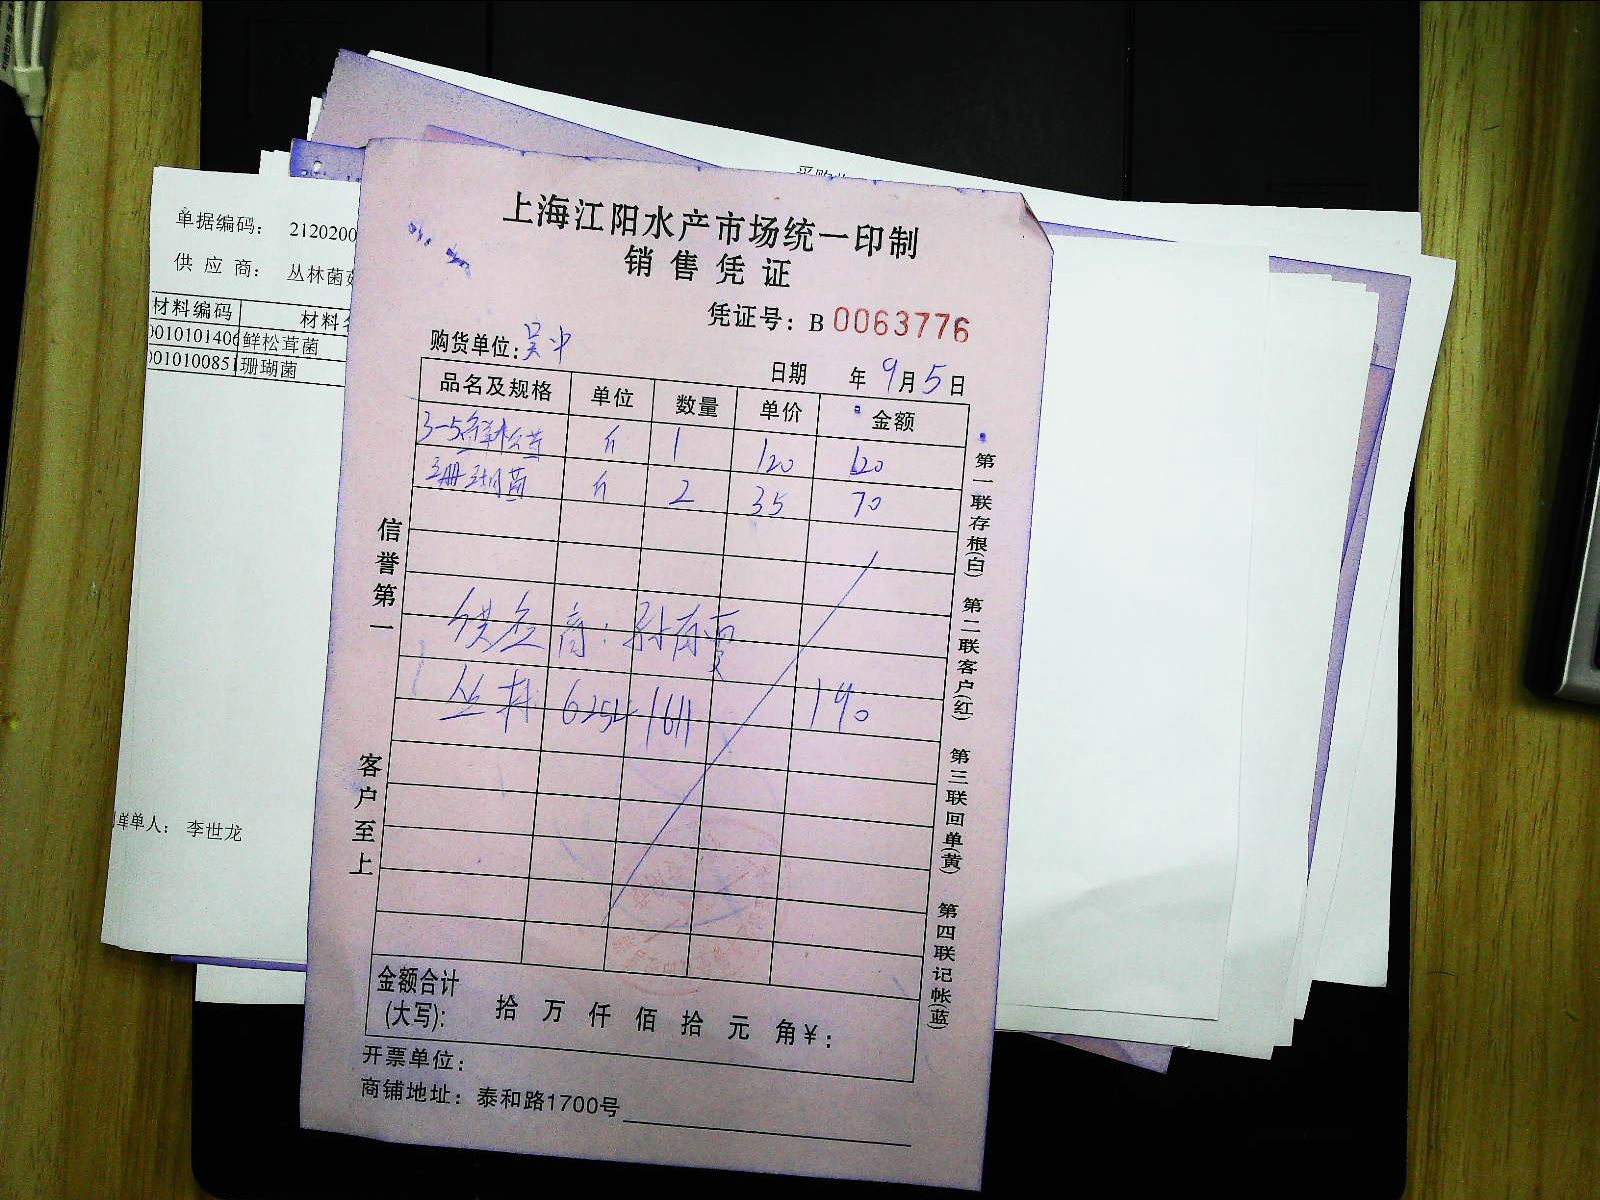 采购
单据编码： 2120200
供 应 商： 丛林菌菇
材料编码 材料名
0010101406 鲜松茸菌
001010085 珊瑚菌
制单人： 李世龙
上海江阳水产市场统一印制
销 售 凭 证
凭证号：B 0063776
购货单位：吴中
日期 年 9 月 5 日
品名及规格 单位 数量 单价 金额
3-5鲜松茸 斤 1 120 120
珊瑚菌 斤 2 35 70
供应商：孙
丛林 62541611 190
信誉第一
客户至上
第一联存根(白) 第二联客户(红) 第三联回单(黄) 第四联记帐(蓝)
金额合计
(大写)： 拾 万 仟 佰 拾 元 角￥：
开票单位：
商铺地址：泰和路1700号